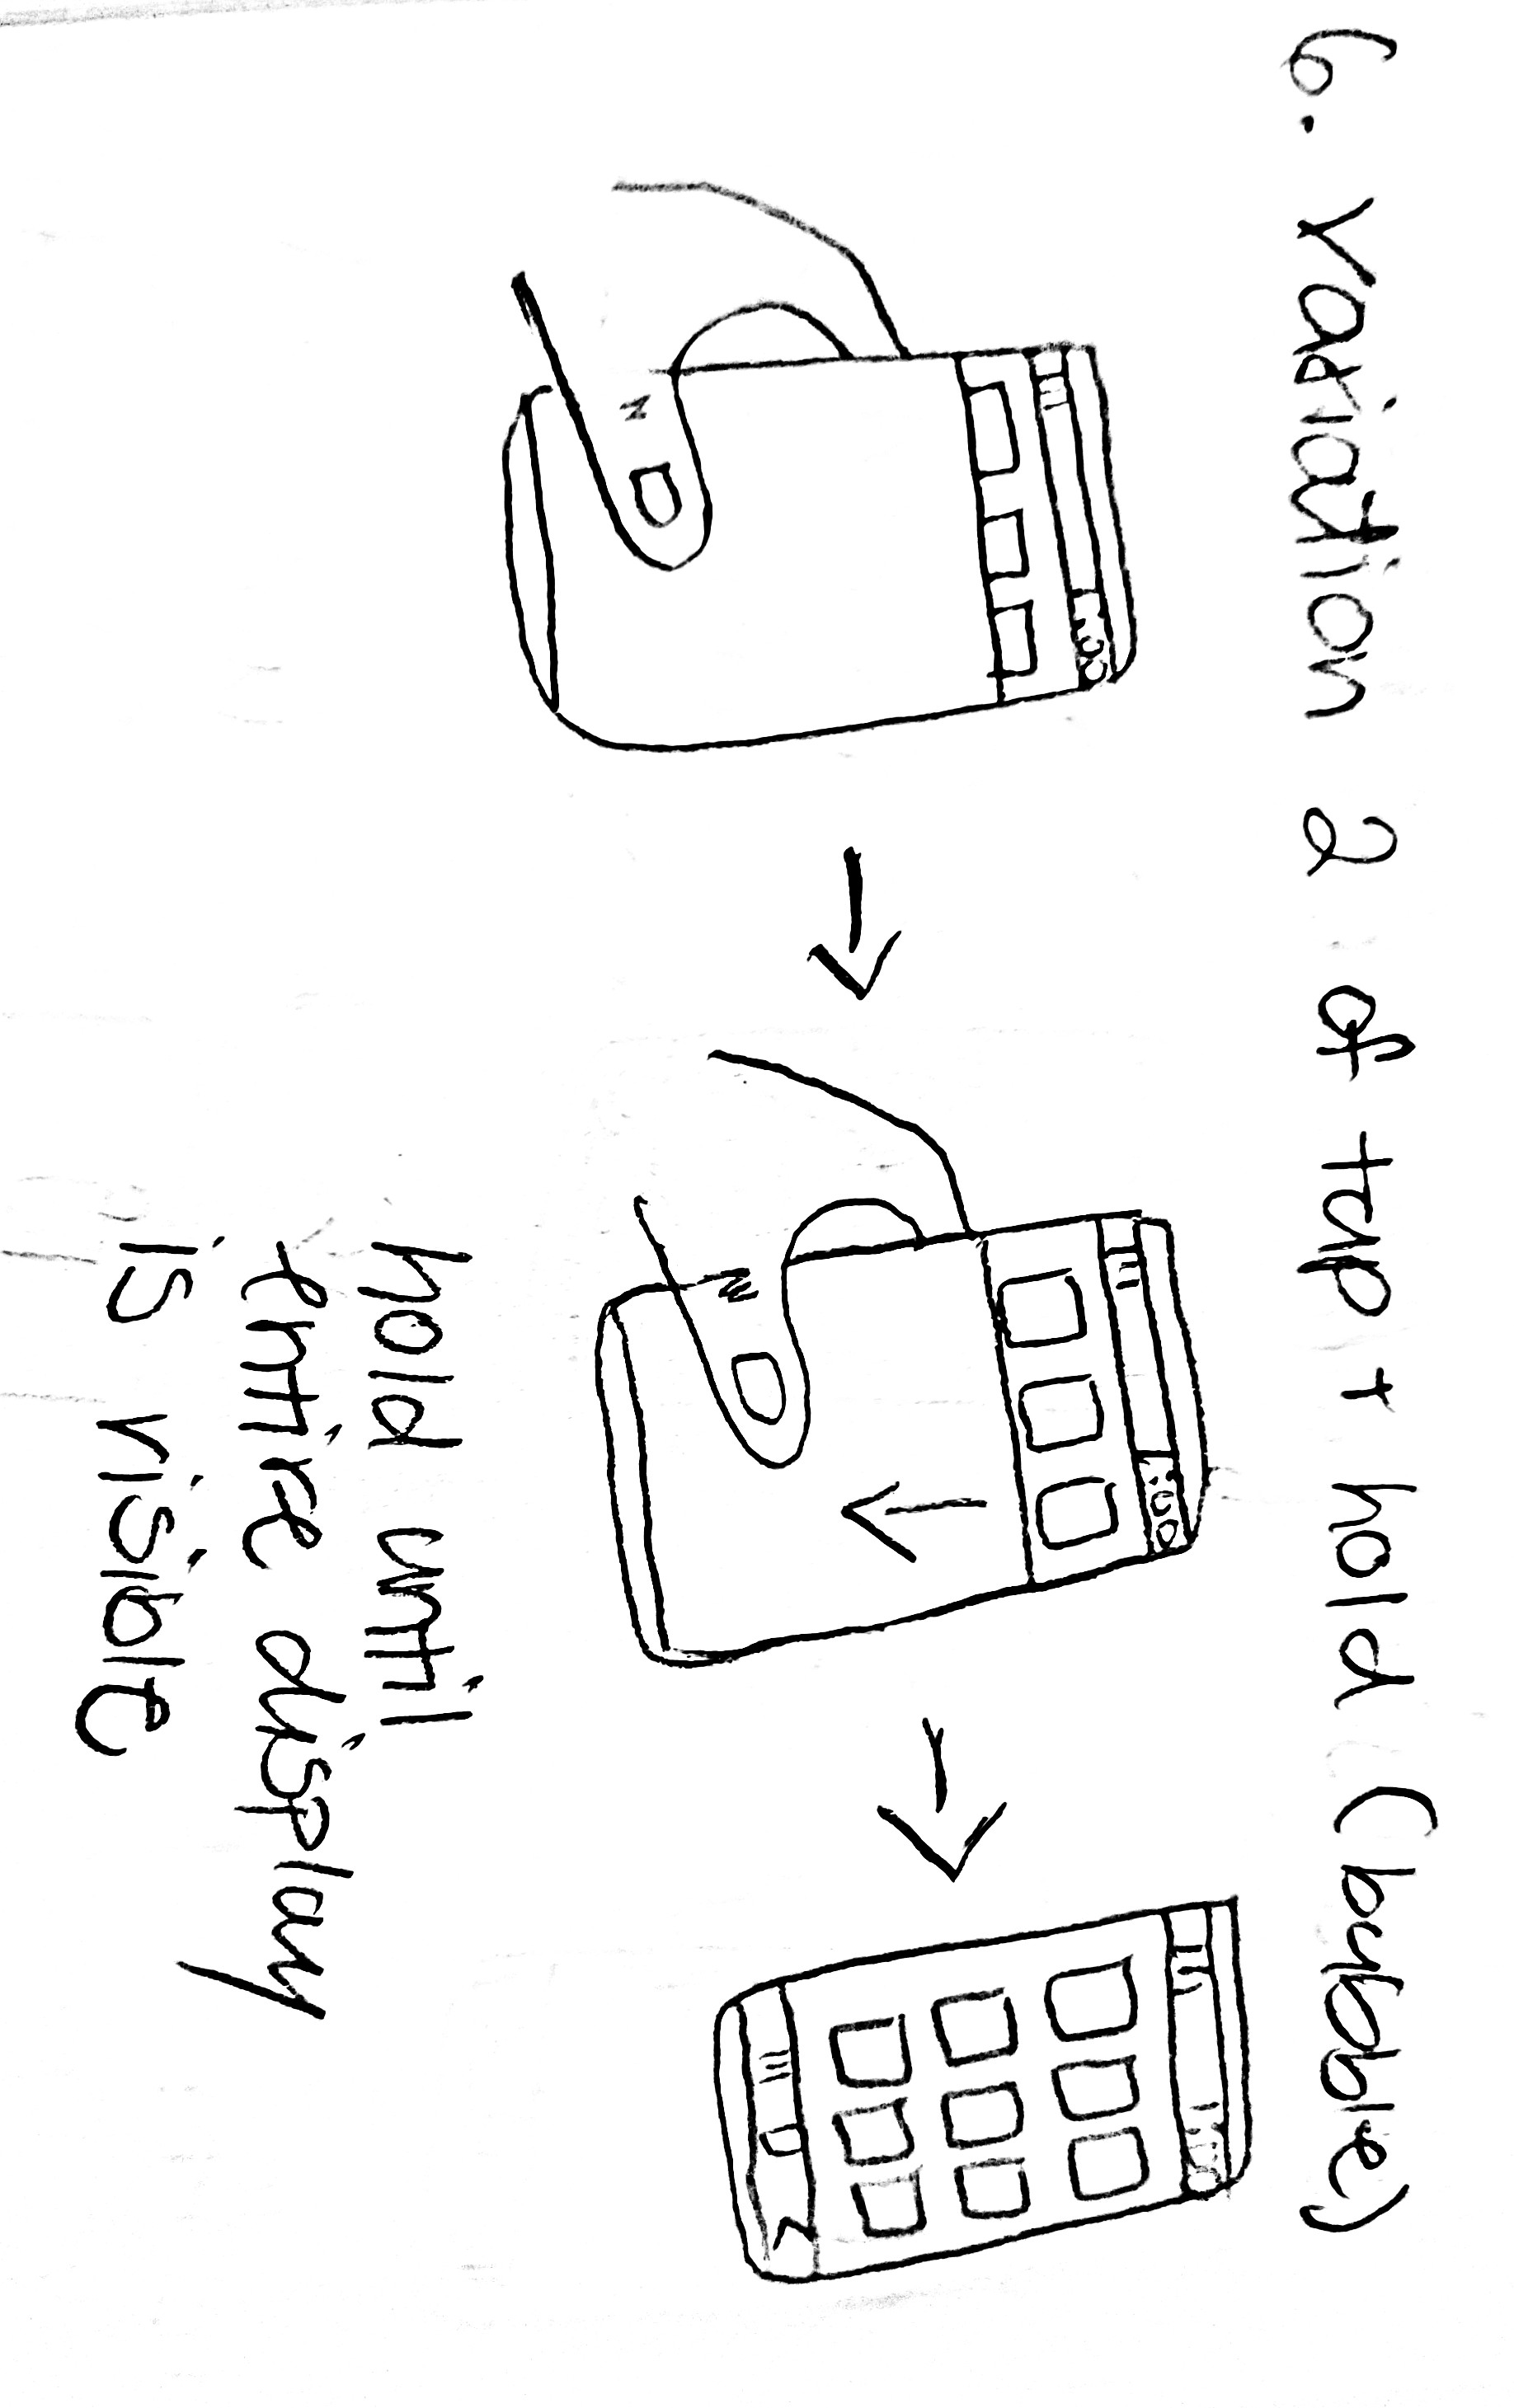 6. variation 2 of tap + hold (bubble)
hold until
entire display
is visible